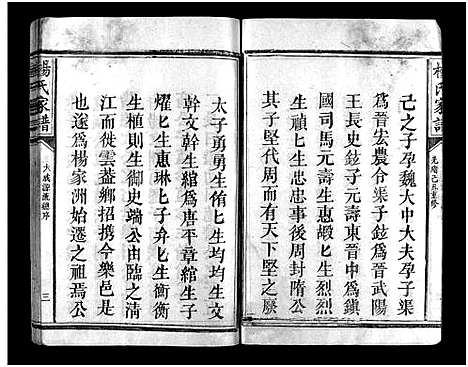 楊氏家譜
光緒己丑重修
己之子孕魏大中大夫孕子渠
為晉宏農令渠子鉉為晉武陽
王長史鉉子元壽東晉中為鎮
國司馬元壽生惠嘏匕生烈烈
生禎匕生忠仕後周封隋公
其子堅代周而有天下堅之厥
太子勇勇生侑匕生均均生文
幹文幹生綰為唐平章綰生子
燿匕生惠琳匕子弁匕生衡衡
生植則生御史瑒公由臨之清
江而徙雲蓋鄉招携今樂邑是
也遂為楊家洲始遷之祖焉公
楊氏家譜
大成源流總序
三